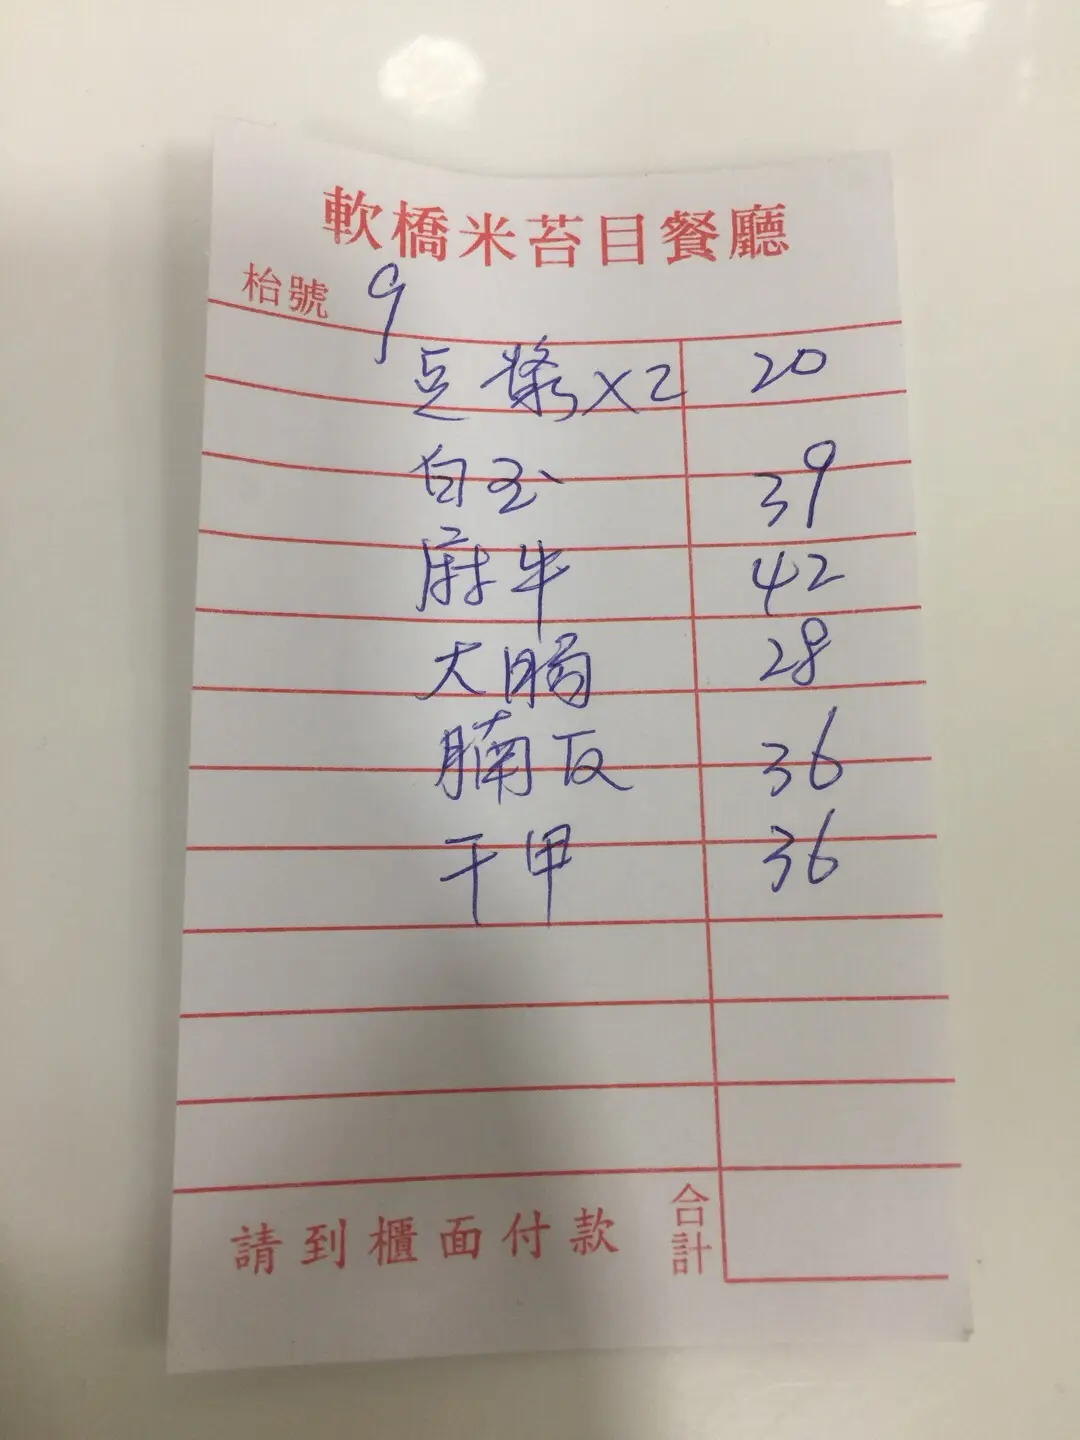 軟橋米苔目餐廳
枱號 9
豆漿x2 20
白玉 39
麻牛 42
大腸 28
腩反 36
干甲 36
請到櫃面付款 合計